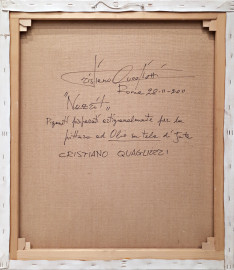 Cristiano Quagliozzi
Roma 22-11-2011
"Nozze"
Pigmenti preparati artigianalmente per la
pittura ad Olio in tela di Juta
CRISTIANO QUAGLIOZZI